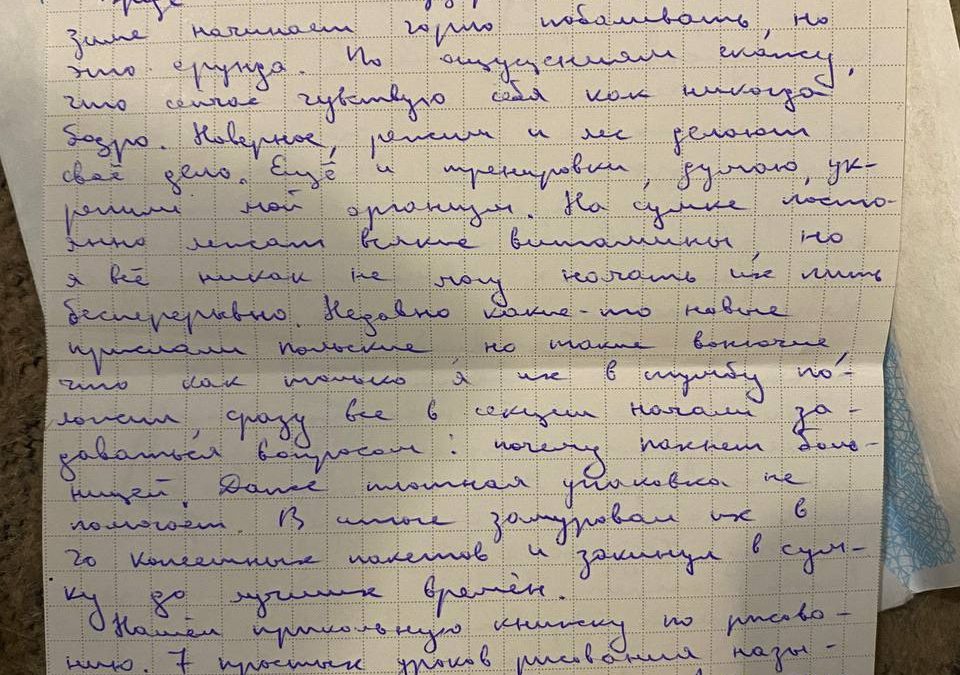 зиме начинает горло побаливать, но
это ерунда. По ощущениям скажу,
что сейчас чувствую себя как никогда
бодро. Наверное, режим и лес делают
своё дело. Ещё и тренировки, думаю, ук-
репили мой организм. На сумке посто-
янно лежат всякие витамины, но
я всё никак не могу начать их пить
бесперерывно. Недавно какие-то новые
прислали польские, но такие вонючие,
что как только я их в тумбу по-
ложил, сразу все в секции начали за-
даваться вопросом: почему пахнет боль-
ницей. Даже плотная упаковка не
помогает. В итоге замуровал их в
20 копеечных пакетов и закинул в сум-
ку до лучших времён.
Нашёл прикольную книжку по рисова-
нию. 7 простых уроков рисования назы-